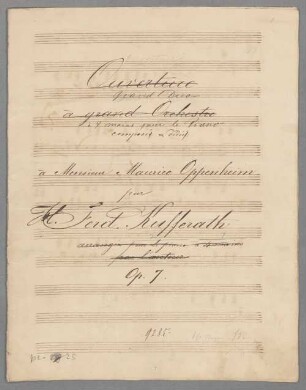 Ouverture
Grand Duo
à grand Orchestre
à 4 mains pour le Piano
composé et dédié
à Monsieur Maurice Oppenheim
par
H. Ferd. Kufferath.
arrangée pour le piano à 4 mains
par l'auteur
Op. 7.
9215.